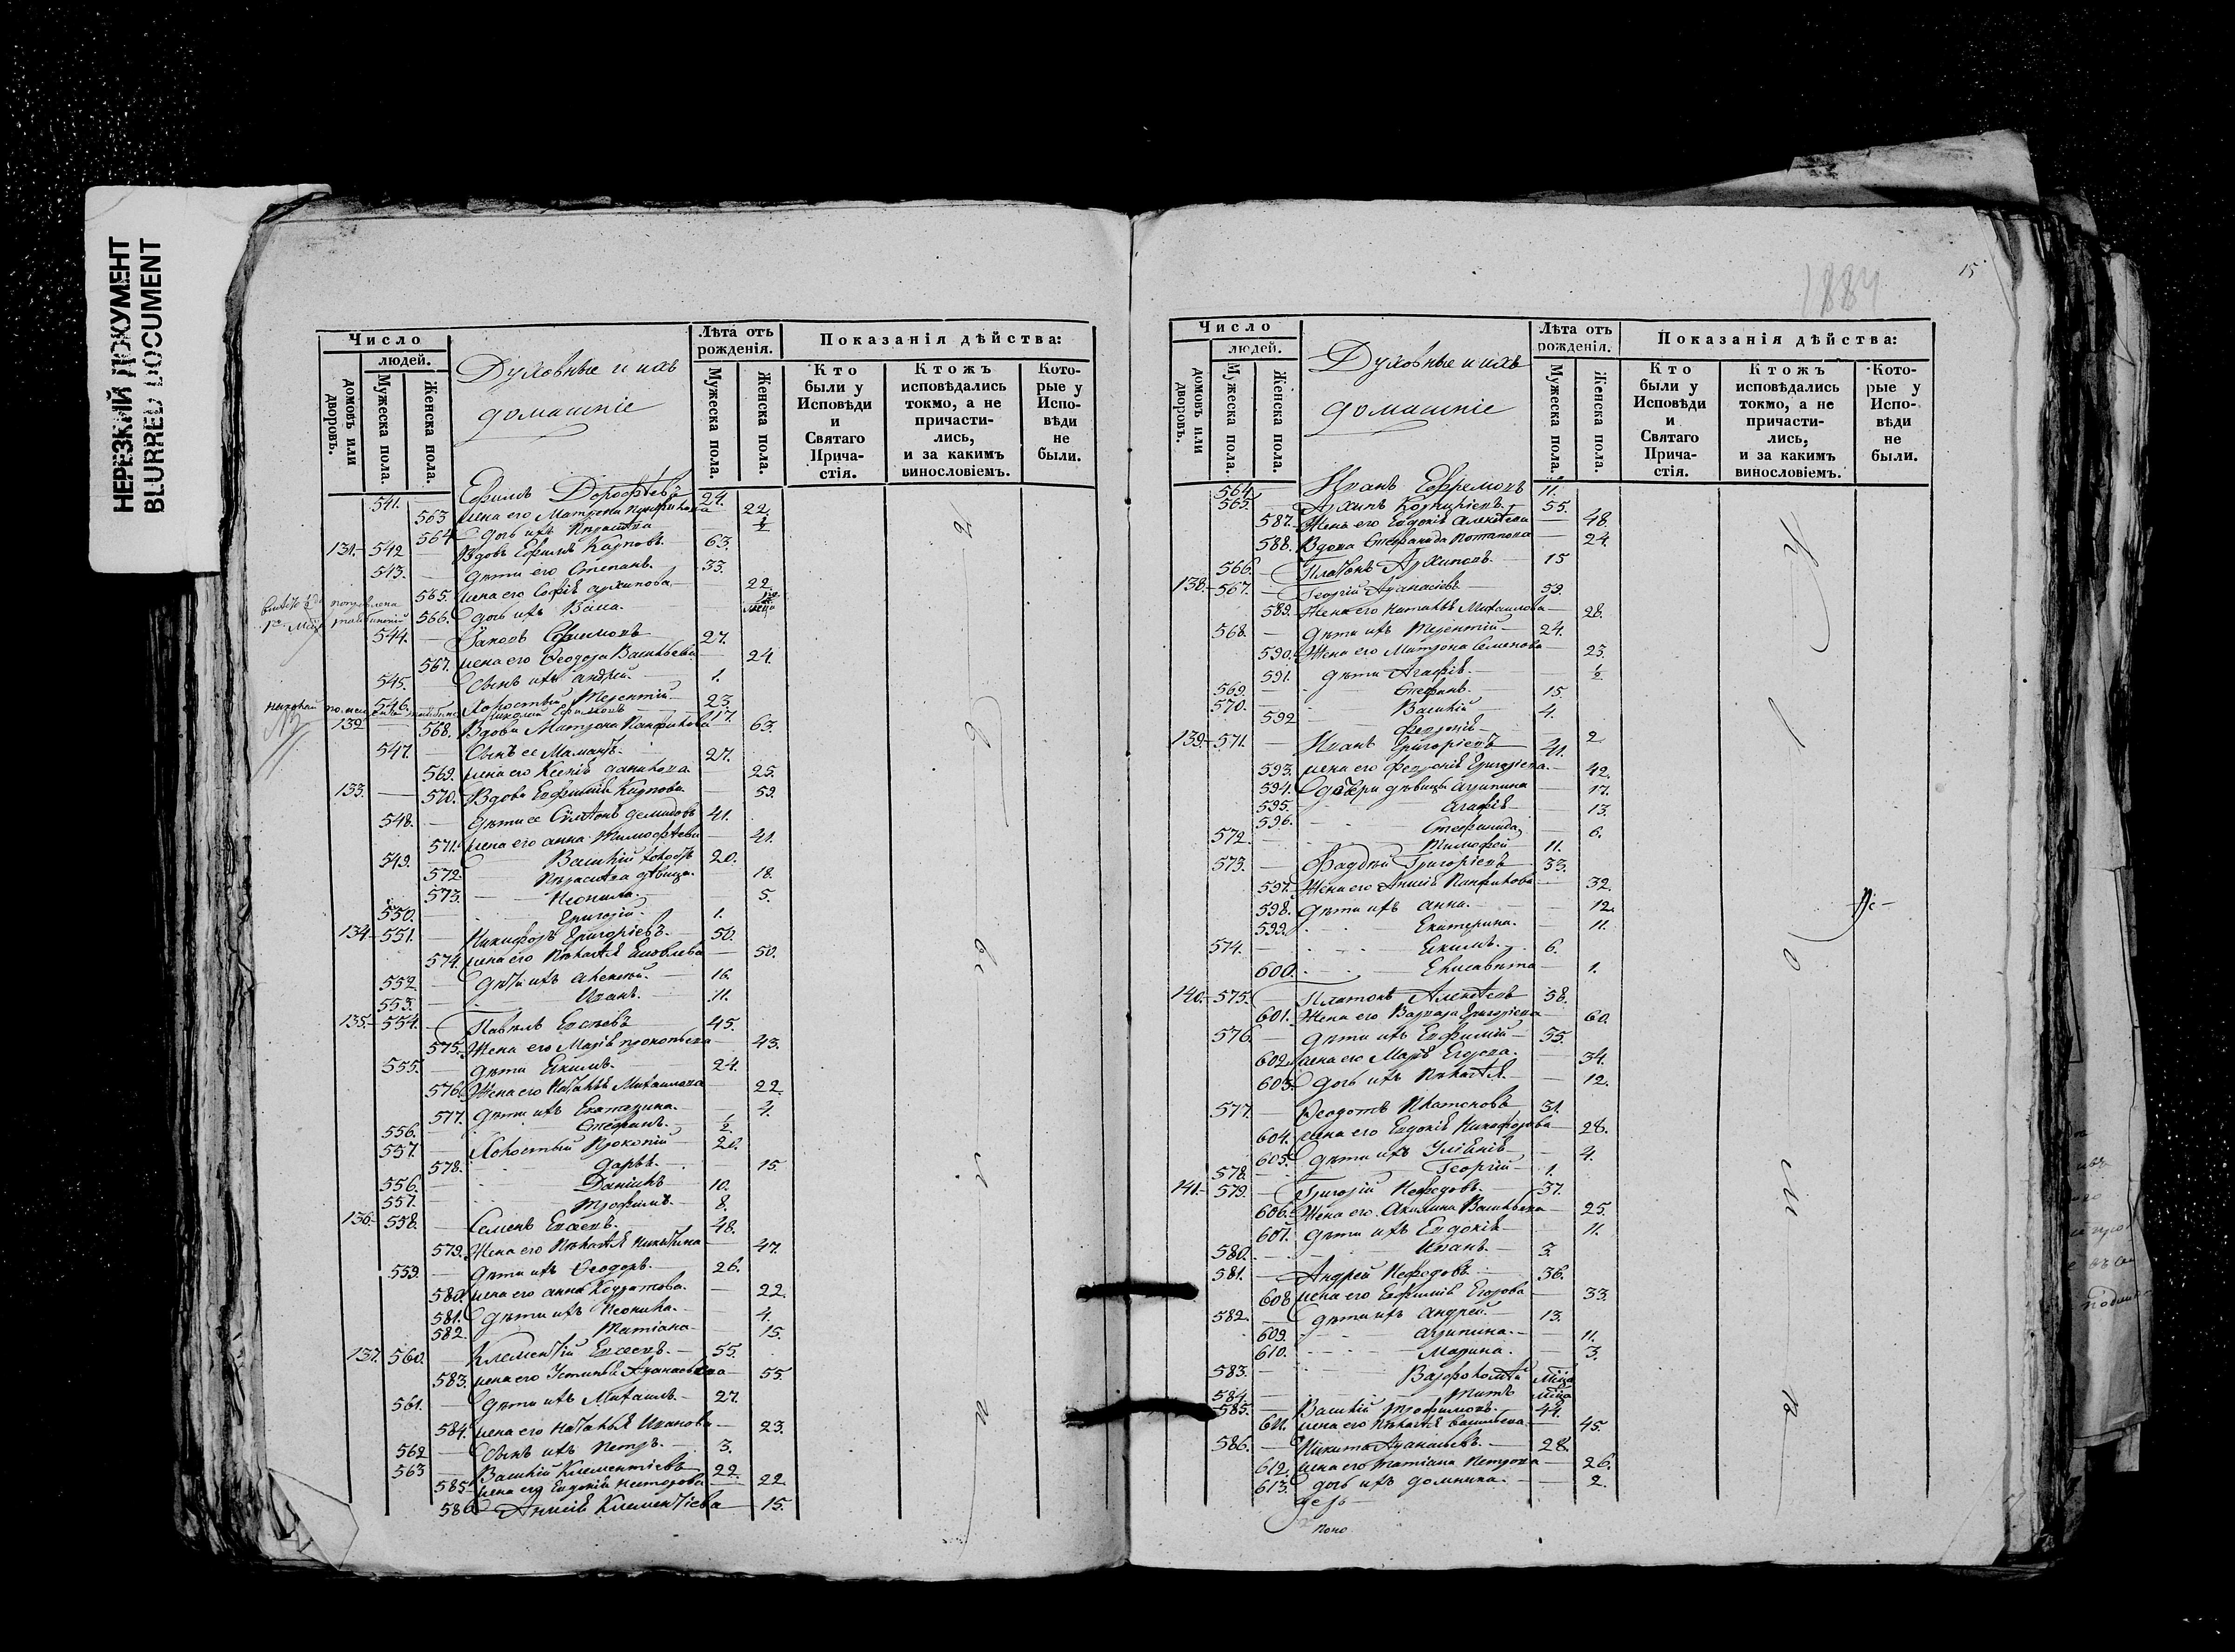 НЕРЕЗКИЙ ДОКУМЕНТ
BLURRED DOCUMENT
Число
людей.
домовъ или дворовъ.
Мужеска пола.
Женска пола.
Духовные и ихъ
домашніе
Лѣта отъ рожденія.
Мужеска пола.
Женска пола.
Показанія дѣйства:
Кто были у Исповѣди и Святаго Прича-стія.
Ктожъ исповѣдались токмо, а не причасти-лись, и за какимъ винословіемъ.
Кото-рые у Испо-вѣди не были.
541. — Ефимъ Дорофѣевъ 24.
563 жена его Матрона Панфилова 22.
564 дочь ихъ Параскева 1/2
131. 542 Вдовъ Ефимъ Карповъ. 63.
543. — дѣти его Степанъ. 33.
565. жена его Софія Архипова 22
566. дочь ихъ
544. — Яковъ Ефимовъ 27.
567. жена его Феодора Васильева 24.
545. Сынъ ихъ Андрей. 1.
546. Холостый Терентій 23.
Николай Ефимовъ 17.
132 568. Вдова Матрона Панфилова 63.
547. Сынъ ее Мамантъ. 27.
569. жена его Ксенія Данилова 25.
133. — 570. Вдова Евфимія Карпова 59.
548. — Дѣти ее Сѵмеонъ Демидовъ 41.
571. жена его Анна Тимофѣева 41.
549. Василій холостъ 20.
572. Параскева дѣвица. 18.
573. Неонила. 5.
550. Григорій. 1.
134 551. Никифоръ Григоріевъ. 50.
574. жена его Пелагея Яковлева 50.
552. — дѣти ихъ Алексѣй. 16.
553. Иванъ. 11.
135. 554. Павелъ Евсѣевъ 45.
575. Жена его Марія Прокопьева 43.
555. дѣти Екимъ. 24.
576. Жена его Наталья Михаилова 22.
577. дѣти ихъ Екатерина. 4.
556. Стефанъ. 1/2.
557. Холостый Прокопій 20.
578. Дарья. 15.
556. Даніилъ 10.
557. Трофимъ. 8.
136. 558. — Семенъ Евсеевъ. 48.
579. Жена его Пелагея Никитина 47.
559. — дѣти ихъ Феодоръ. 26.
580. жена его Анна Кондратова. 22.
581. дѣти ихъ Неонила. 4.
582. Татіана 15.
137. 560. — Клементій Евсеевъ. 55.
583. жена его Устинья Афанасьева 55.
561. — дѣти ихъ Михаилъ. 27.
584. жена его Наталья Иванова 23.
562 — Сынъ ихъ Петръ. 3.
563 — Василій Клементіевъ 22.
585. жена его Евдокія Несторова 22
586 Анисія Клементіева 15.
1884
15
Число
людей.
домовъ или дворовъ.
Мужеска пола.
Женска пола.
Духовные и ихъ
домашніе
Лѣта отъ рожденія.
Мужеска пола.
Женска пола.
Показанія дѣйства:
Кто были у Исповѣди и Святаго Прича-стія.
Ктожъ исповѣдались токмо, а не причасти-лись, и за какимъ винословіемъ.
Кото-рые у Испо-вѣди не были.
564 — Иванъ Ефремовъ 11.
565. — Архипъ 55.
587. Жена его Евдокія Алексѣева 48.
588. Вдова Стефанида Потапова 24.
566. — Платонъ Архиповъ. 15
138. 567. — Георгій Афанасіевъ 59.
589. Жена его Наталья Михаилова 28.
568. — дѣти ихъ Терентій 24.
590. Жена его Матрона Семенова 23.
591. дѣти Агафія. 1/2
569. Стефанъ. 15.
570. Василій 4.
592 Февронія 2
139. 571. — Иванъ Григоріевъ 41.
593. жена его Февронія Григоріева. 42.
594. дочери дѣвицы Агрипина 17.
595. Агафія 13.
596. Стефанида 6.
572. Тимофей 11.
573. — Фаддѣй Григоріевъ 33.
597. Жена его Анисія Панфилова 32.
598. дѣти ихъ Анна. 12.
599. Екатерина. 11.
574. Екимъ. 6.
600. Елисавета 1.
140. 575. Платонъ Алексѣевъ 58.
601. Жена его Варвара Григоріева 60.
576. — дѣти ихъ Евфимій 35.
602. жена его Марія Егорова. 34.
603. дочь ихъ Пелагея. 12.
577. — Феодотъ Платоновъ 31.
604. жена его Евдокія Никифорова 28.
605. дѣти ихъ Уліянія 4.
578. Георгій 1.
141. 579. — Григорій Нефедовъ. 37.
606. Жена его Акилина Васильева 25.
607. дѣти ихъ Евдокія 11.
580. Иванъ. 3.
581. — Андрей Нефедовъ 36.
608 жена его Евфимія Егорова 33.
582. дѣти ихъ Андрей. 13.
609. Агрипина. 11.
610. Марина. 3.
583. Варфоломѣй
584. Титъ
585. — Василій Трофимовъ. 44.
611. жена его Пелагея Васильева 45.
586. — Никита Афанасьевъ. 28.
612. жена его Татіана Петрова 26.
613. дочь ихъ Домника. 2.